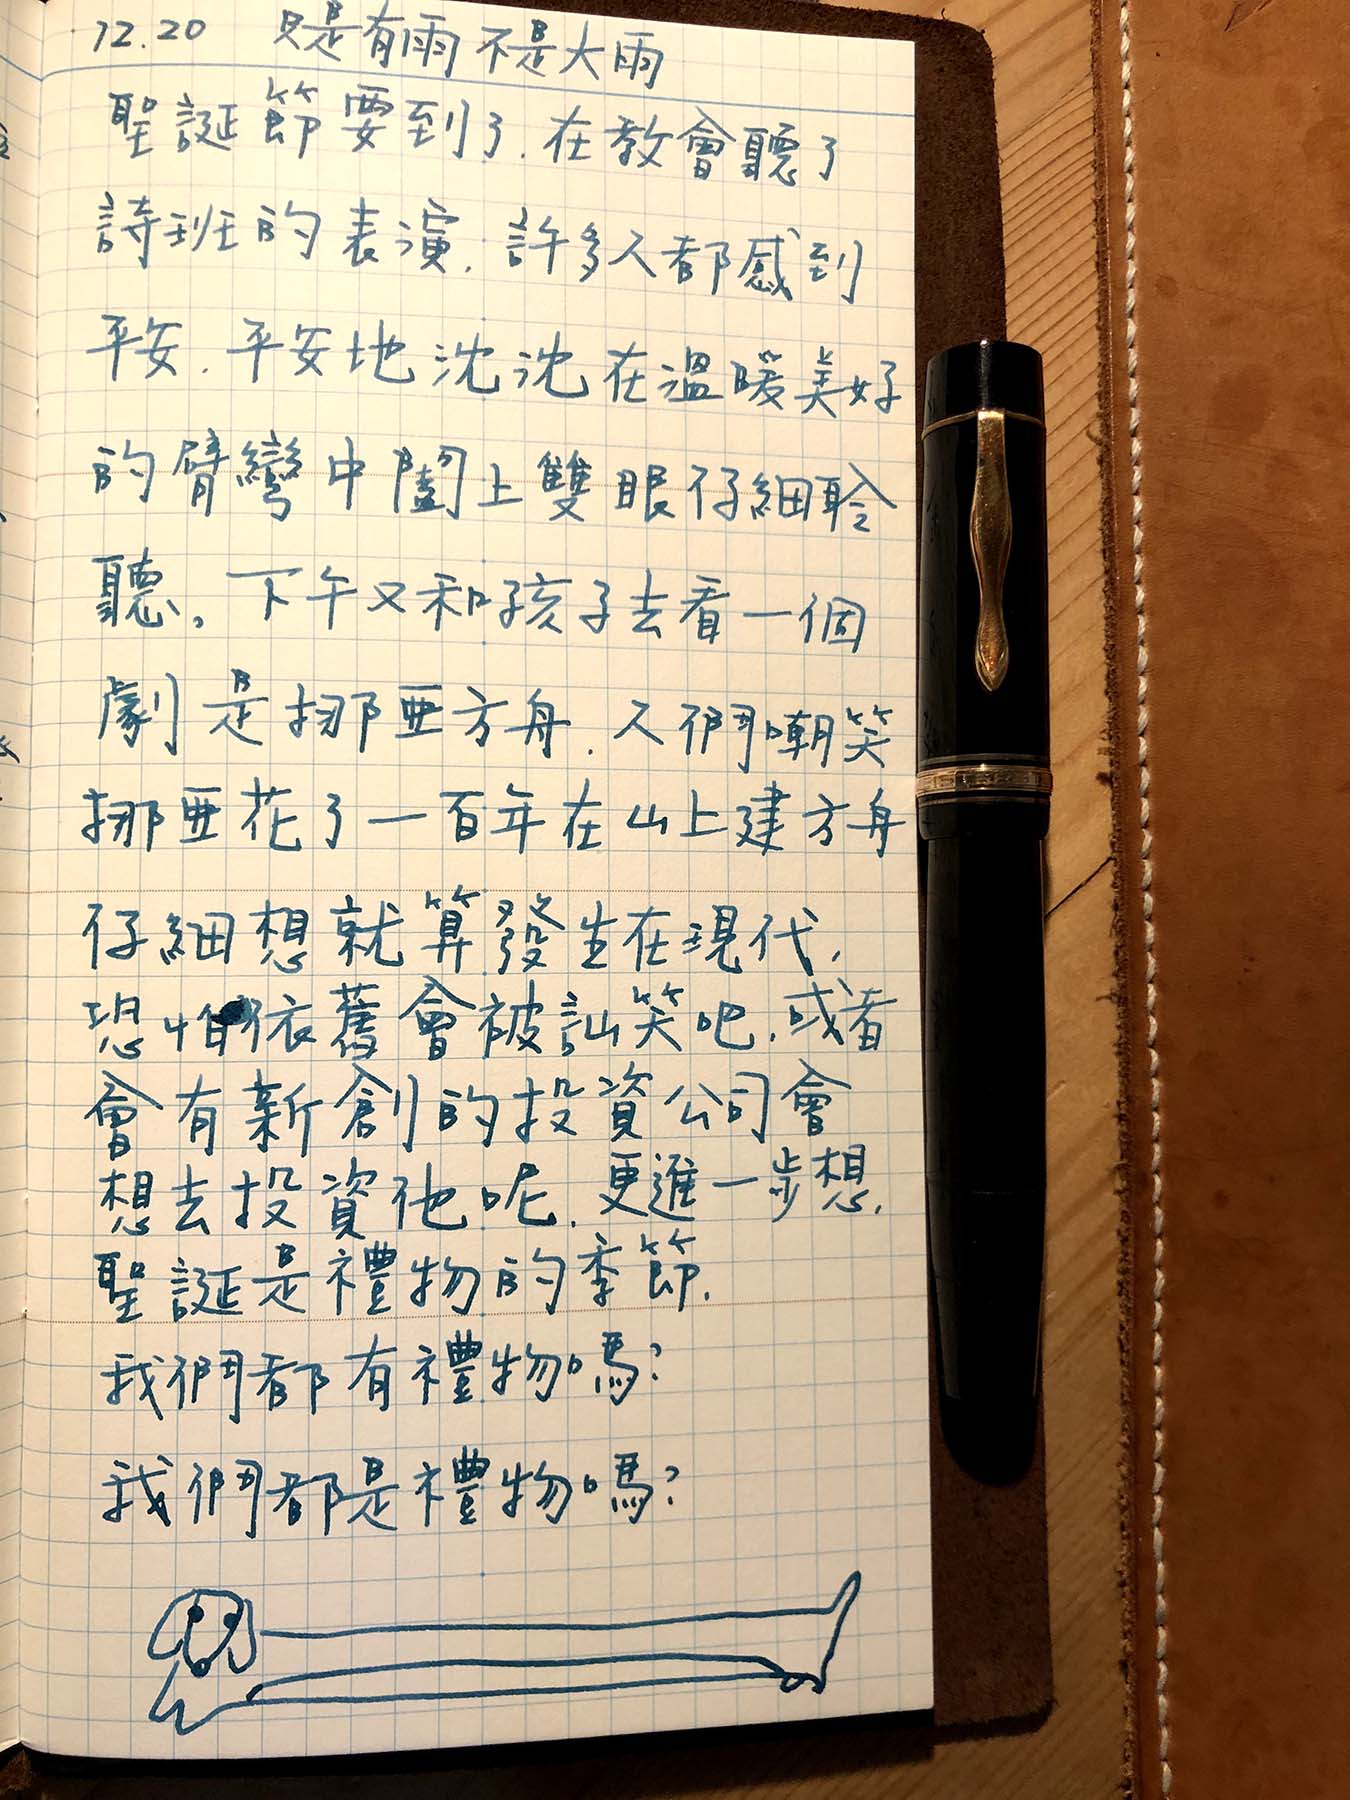 12.20 只是有雨不是大雨
聖誕節要到了.在教會聽了
詩班的表演.許多人都感到
平安.平安地沈沈在溫暖美好
的臂彎中闔上雙眼仔細聆
聽。下午又和孩子去看一個
劇是挪亞方舟.人們嘲笑
挪亞花了一百年在山上建方舟
仔細想就算發生在現代.
恐怕依舊會被訕笑吧.或者
會有新創的投資公司會
想去投資他呢.更進一步想.
聖誕是禮物的季節.
我們都有禮物嗎?
我們都是禮物嗎?